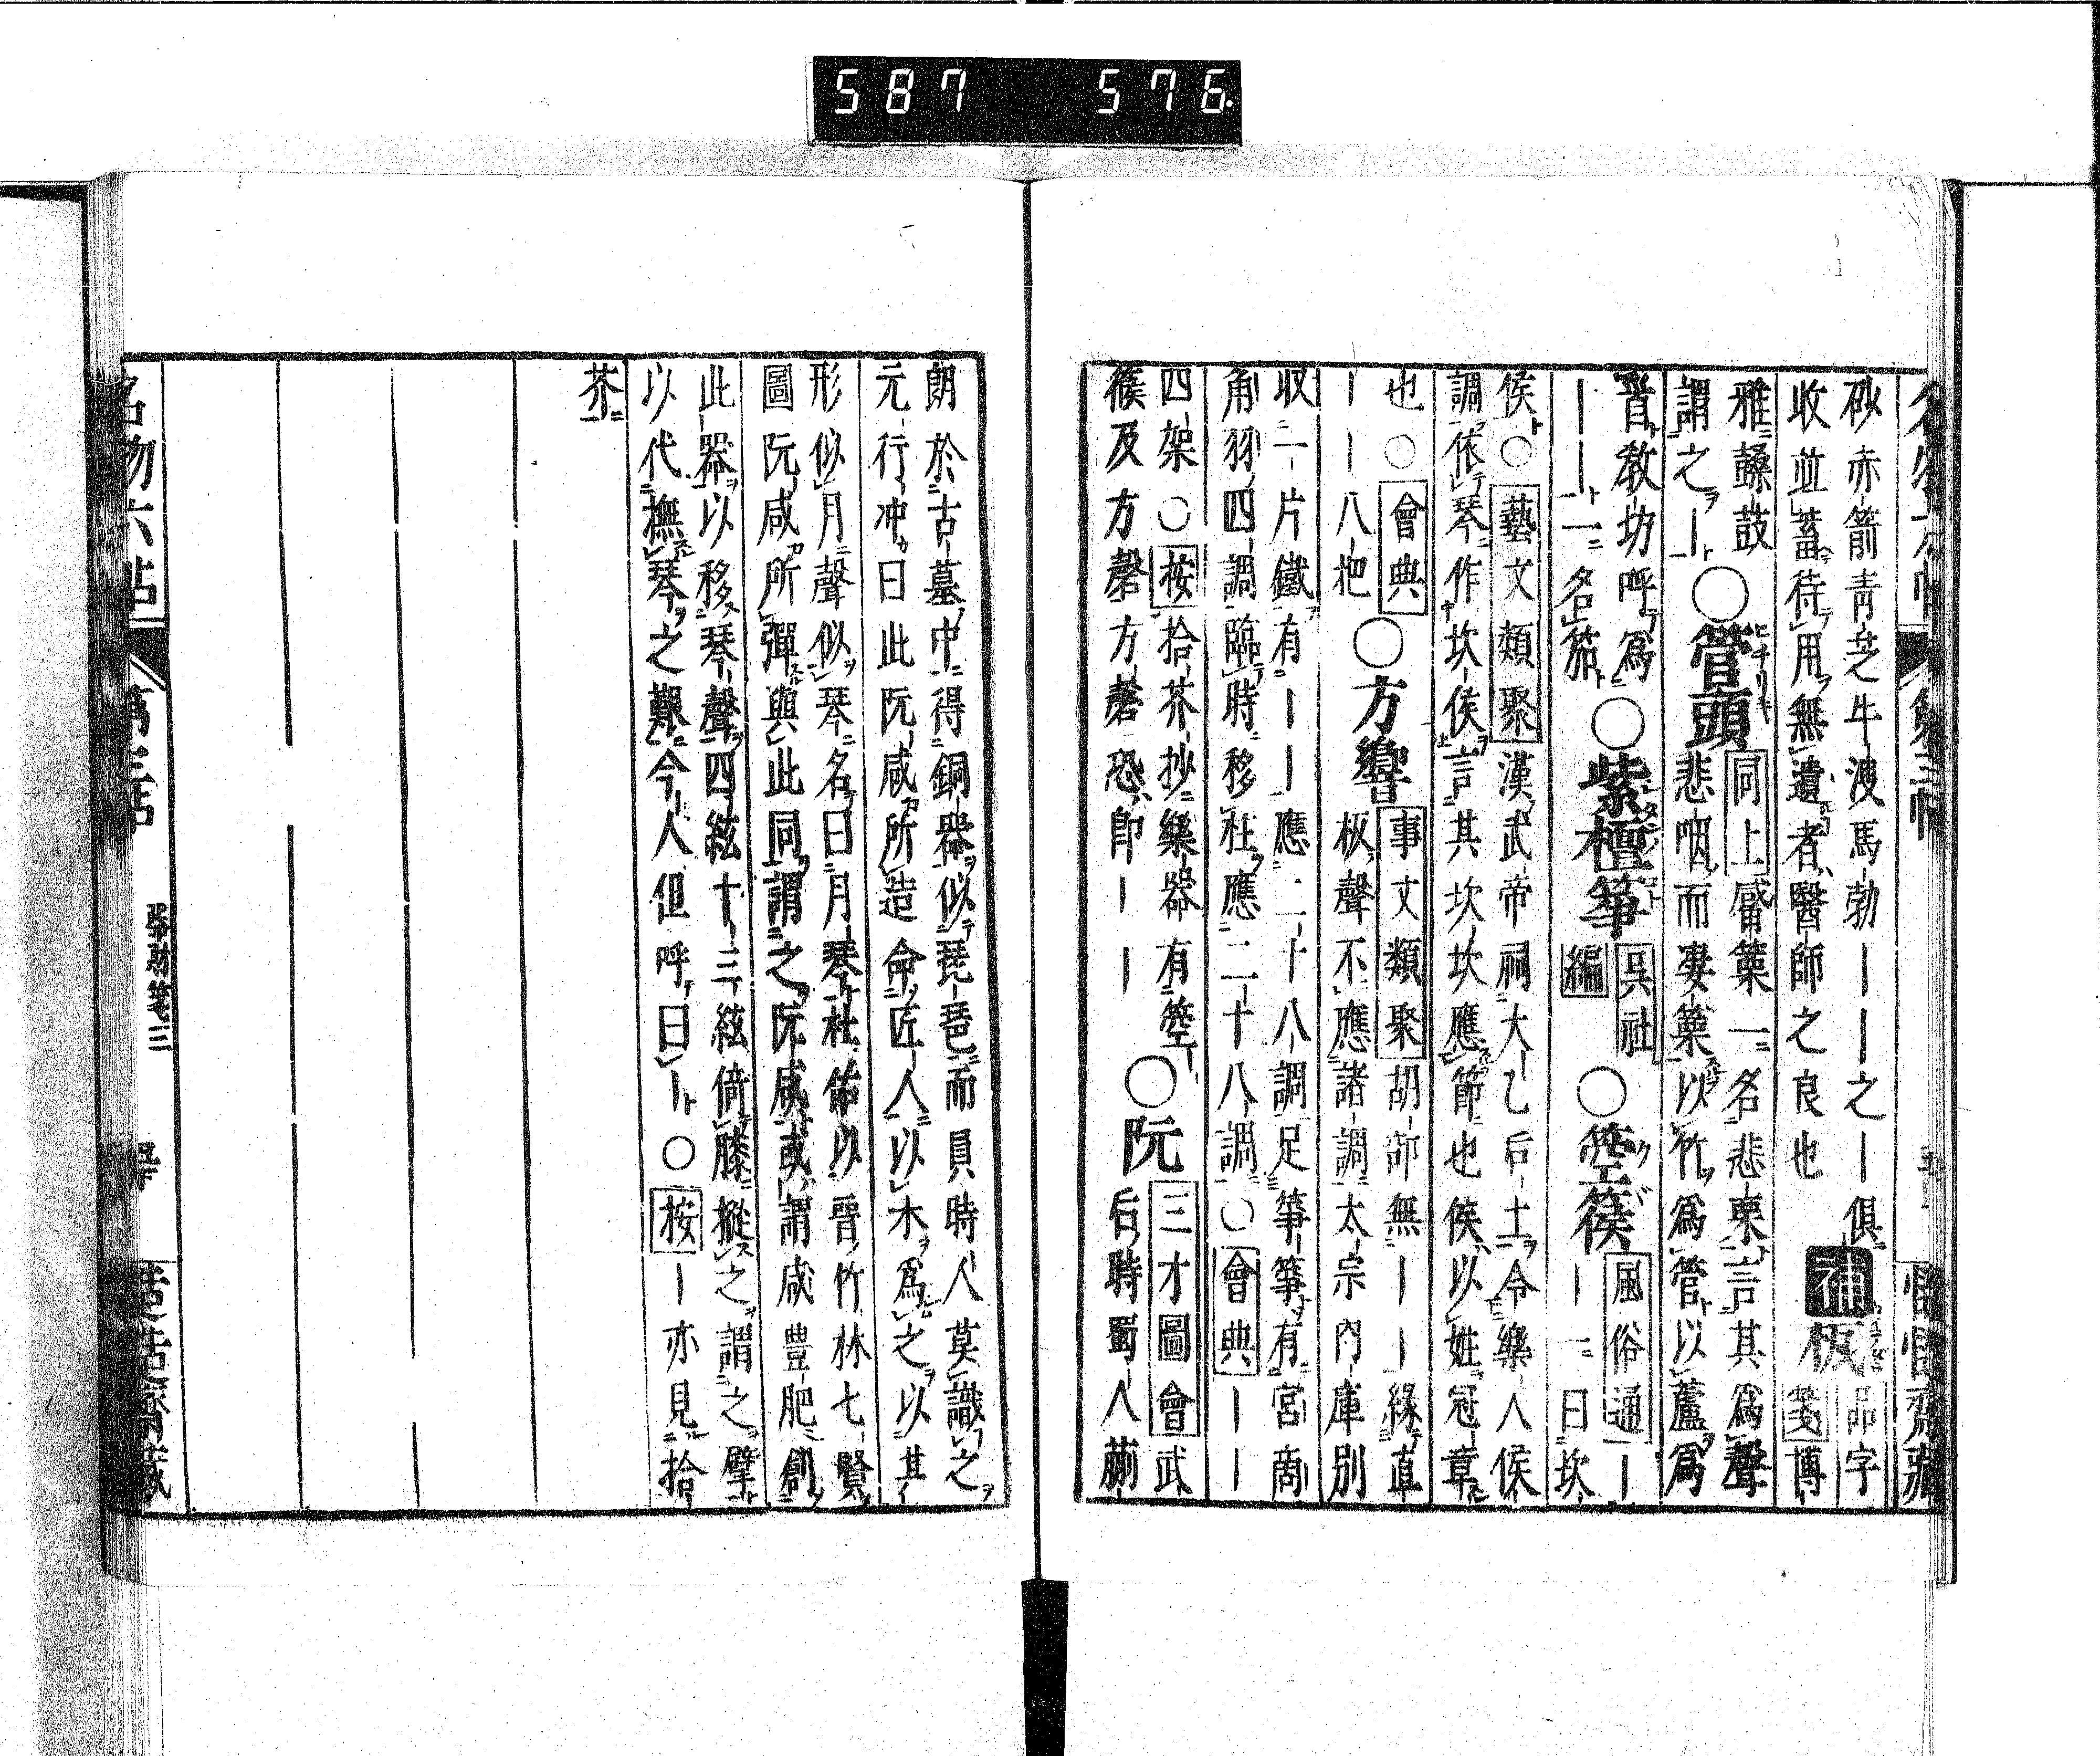 587 576
砂赤箭青芝牛溲馬勃――之―俱
收並蓄待用無遺者醫師之良也
補板
品字
箋博
雅鼛鼓
謂之―
○管頭
同上
觱篥一名悲栗言其爲聲
悲咽而凄篥以竹爲管以蘆爲
首敎坊呼爲
――一名笳
○紫檀箏
吳社
編
○箜篌
風俗通―
―一曰坎
侯○藝文類聚漢武帝祠大乙后土令樂人侯
調依琴作坎侯言其坎坎應節也侯以姓冠章
也○會典
――八把
○方響
事文類聚胡部無――緣直
板聲不應諸調太宗內庫別
収一片鐵有――應二十八調足箏箏有宮商
角羽四調臨時移柱應二十八調○會典――
四架○按拾芥抄樂器有箜
篌及方磬方磬恐卽――
○阮
三才圖會武
后時蜀人蒯
朗於古墓中得銅器似琵琶而員時人莫識之
元行冲曰此阮咸所造命匠人以木爲之以其
形似月聲似琴名曰月琴杜佑以晉竹林七賢
圖阮咸所彈與此同謂之阮咸或謂咸豊肥創
此器以移琴聲四絃十三絃倚膝摐之謂之擘
以代撫琴之艱今人但呼曰―○按―亦見拾
芥
名物六帖
第三帖
器財箋三